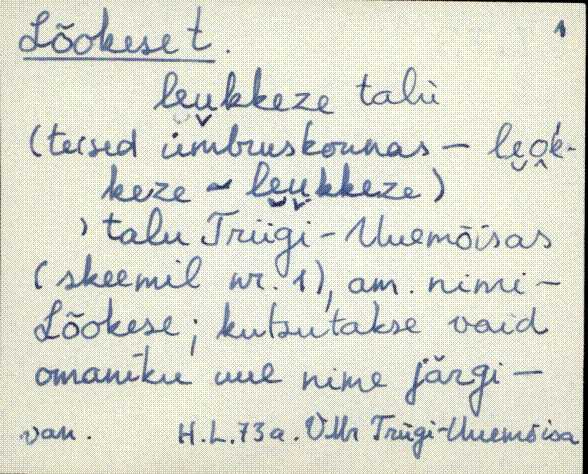 Lõokese t. 1
leu̬kkeze talu
(teised ümbruskonnas – leok-
keze ~ leu̬kkeze)
› talu Triigi-Uuemõisas
(skeemil nr. 1), am. nimi –
Lõokese; kutsutakse vaid
omaniku uue nime järgi –
van. H.L. 73a. VMr Triigi-Uuemõisa